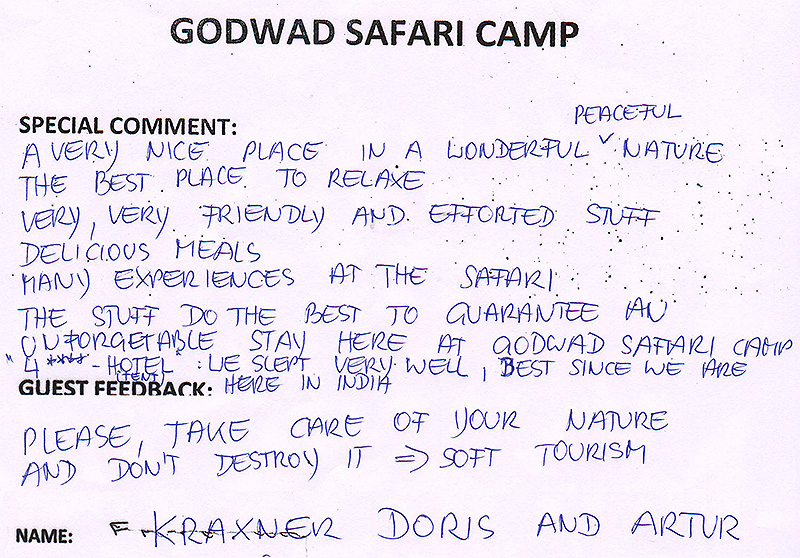 GODWAD SAFARI CAMP
SPECIAL COMMENT:
PEACEFUL
A VERY NICE PLACE IN A WONDERFUL ∨ NATURE
THE BEST PLACE TO RELAXE
VERY, VERY FRIENDLY AND EFFORTED STUFF
DELICIOUS MEALS
MANY EXPERIENCES AT THE SAFARI
THE STUFF DO THE BEST TO GUARANTEE AN
UNFORGETABLE STAY HERE AT GODWAD SAFARI CAMP
"4 **** - HOTEL": WE SLEPT VERY WELL, BEST SINCE WE ARE
(TENT)
GUEST FEEDBACK: HERE IN INDIA
PLEASE, TAKE CARE OF YOUR NATURE
AND DON'T DESTROY IT ⇒ SOFT TOURISM
NAME: KRAXNER DORIS AND ARTUR